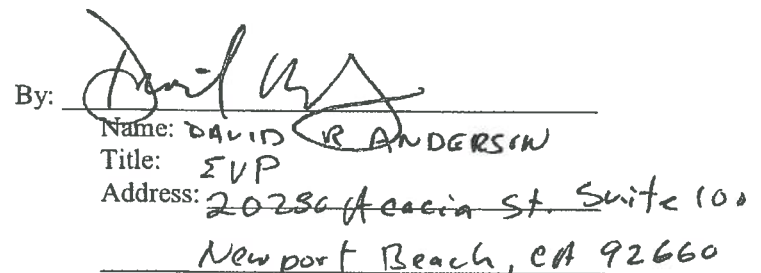 By:
Name: DAVID R ANDERSON
Title: EVP
Address: 20280 Acacia St. Suite 100
Newport Beach, CA 92660